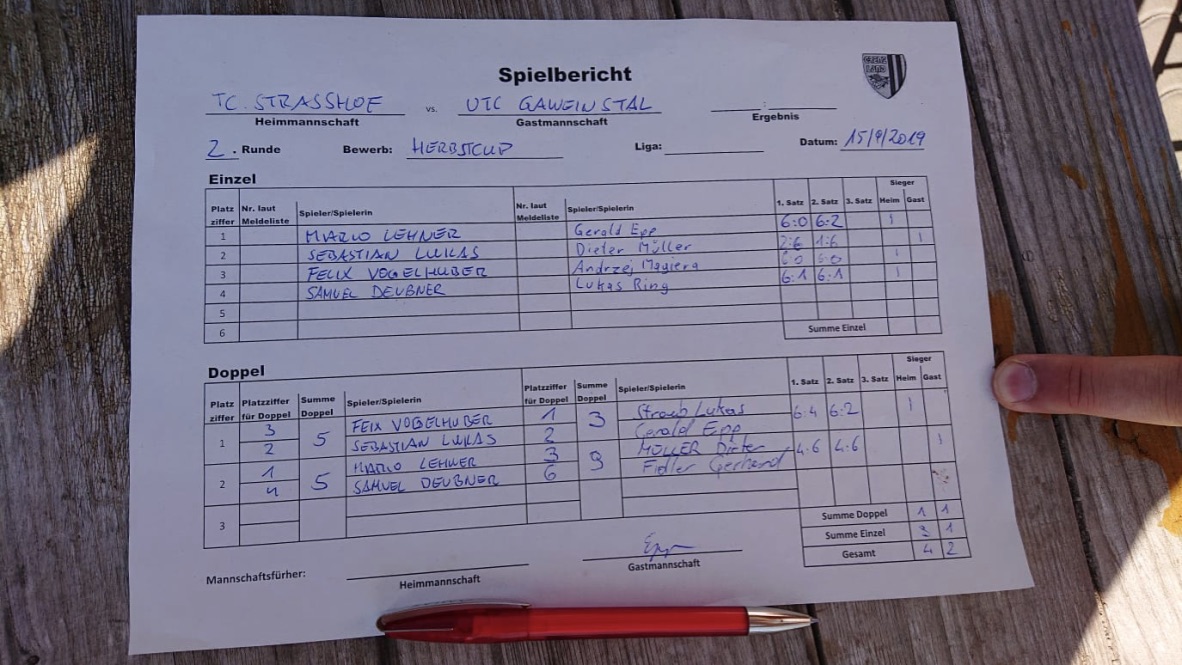 Spielbericht
TC. STRASSHOF vs. UTC GAWEINSTAL :
Heimmannschaft Gastmannschaft Ergebnis
2. Runde Bewerb: HERBSTCUP Liga: Datum: 15/9/2019
Einzel
Platz ziffer Nr. laut Meldeliste Spieler/Spielerin Nr. laut Meldeliste Spieler/Spielerin 1. Satz 2. Satz 3. Satz Sieger Heim Gast
1 MARIO LEHNER Gerald Epp 6:0 6:2 1
2 SEBASTIAN LUKAS Dieter Müller 2:6 1:6 1
3 FELIX VOGELHUBER Andrzej Magiera 6:0 6:0 1
4 SAMUEL DEUBNER Lukas Ring 6:1 6:1 1
5
6
Summe Einzel
Doppel
Platz ziffer Platzziffer für Doppel Summe Doppel Spieler/Spielerin Platzziffer für Doppel Summe Doppel Spieler/Spielerin 1. Satz 2. Satz 3. Satz Sieger Heim Gast
1 3 5 FEIX VOGELHUBER 1 3 Straub Lukas 6:4 6:2 1
2 SEBASTIAN LUKAS 2 Gerald Epp
2 1 5 MARIO LEHNER 3 9 MÜLLER Dieter 4:6 4:6 1
4 SAMUEL DEUBNER 6 Fidler Gerhard
3
Summe Doppel 1 1
Summe Einzel 3 1
Gesamt 4 2
Mannschaftsfürher: Heimmannschaft Epp Gastmannschaft